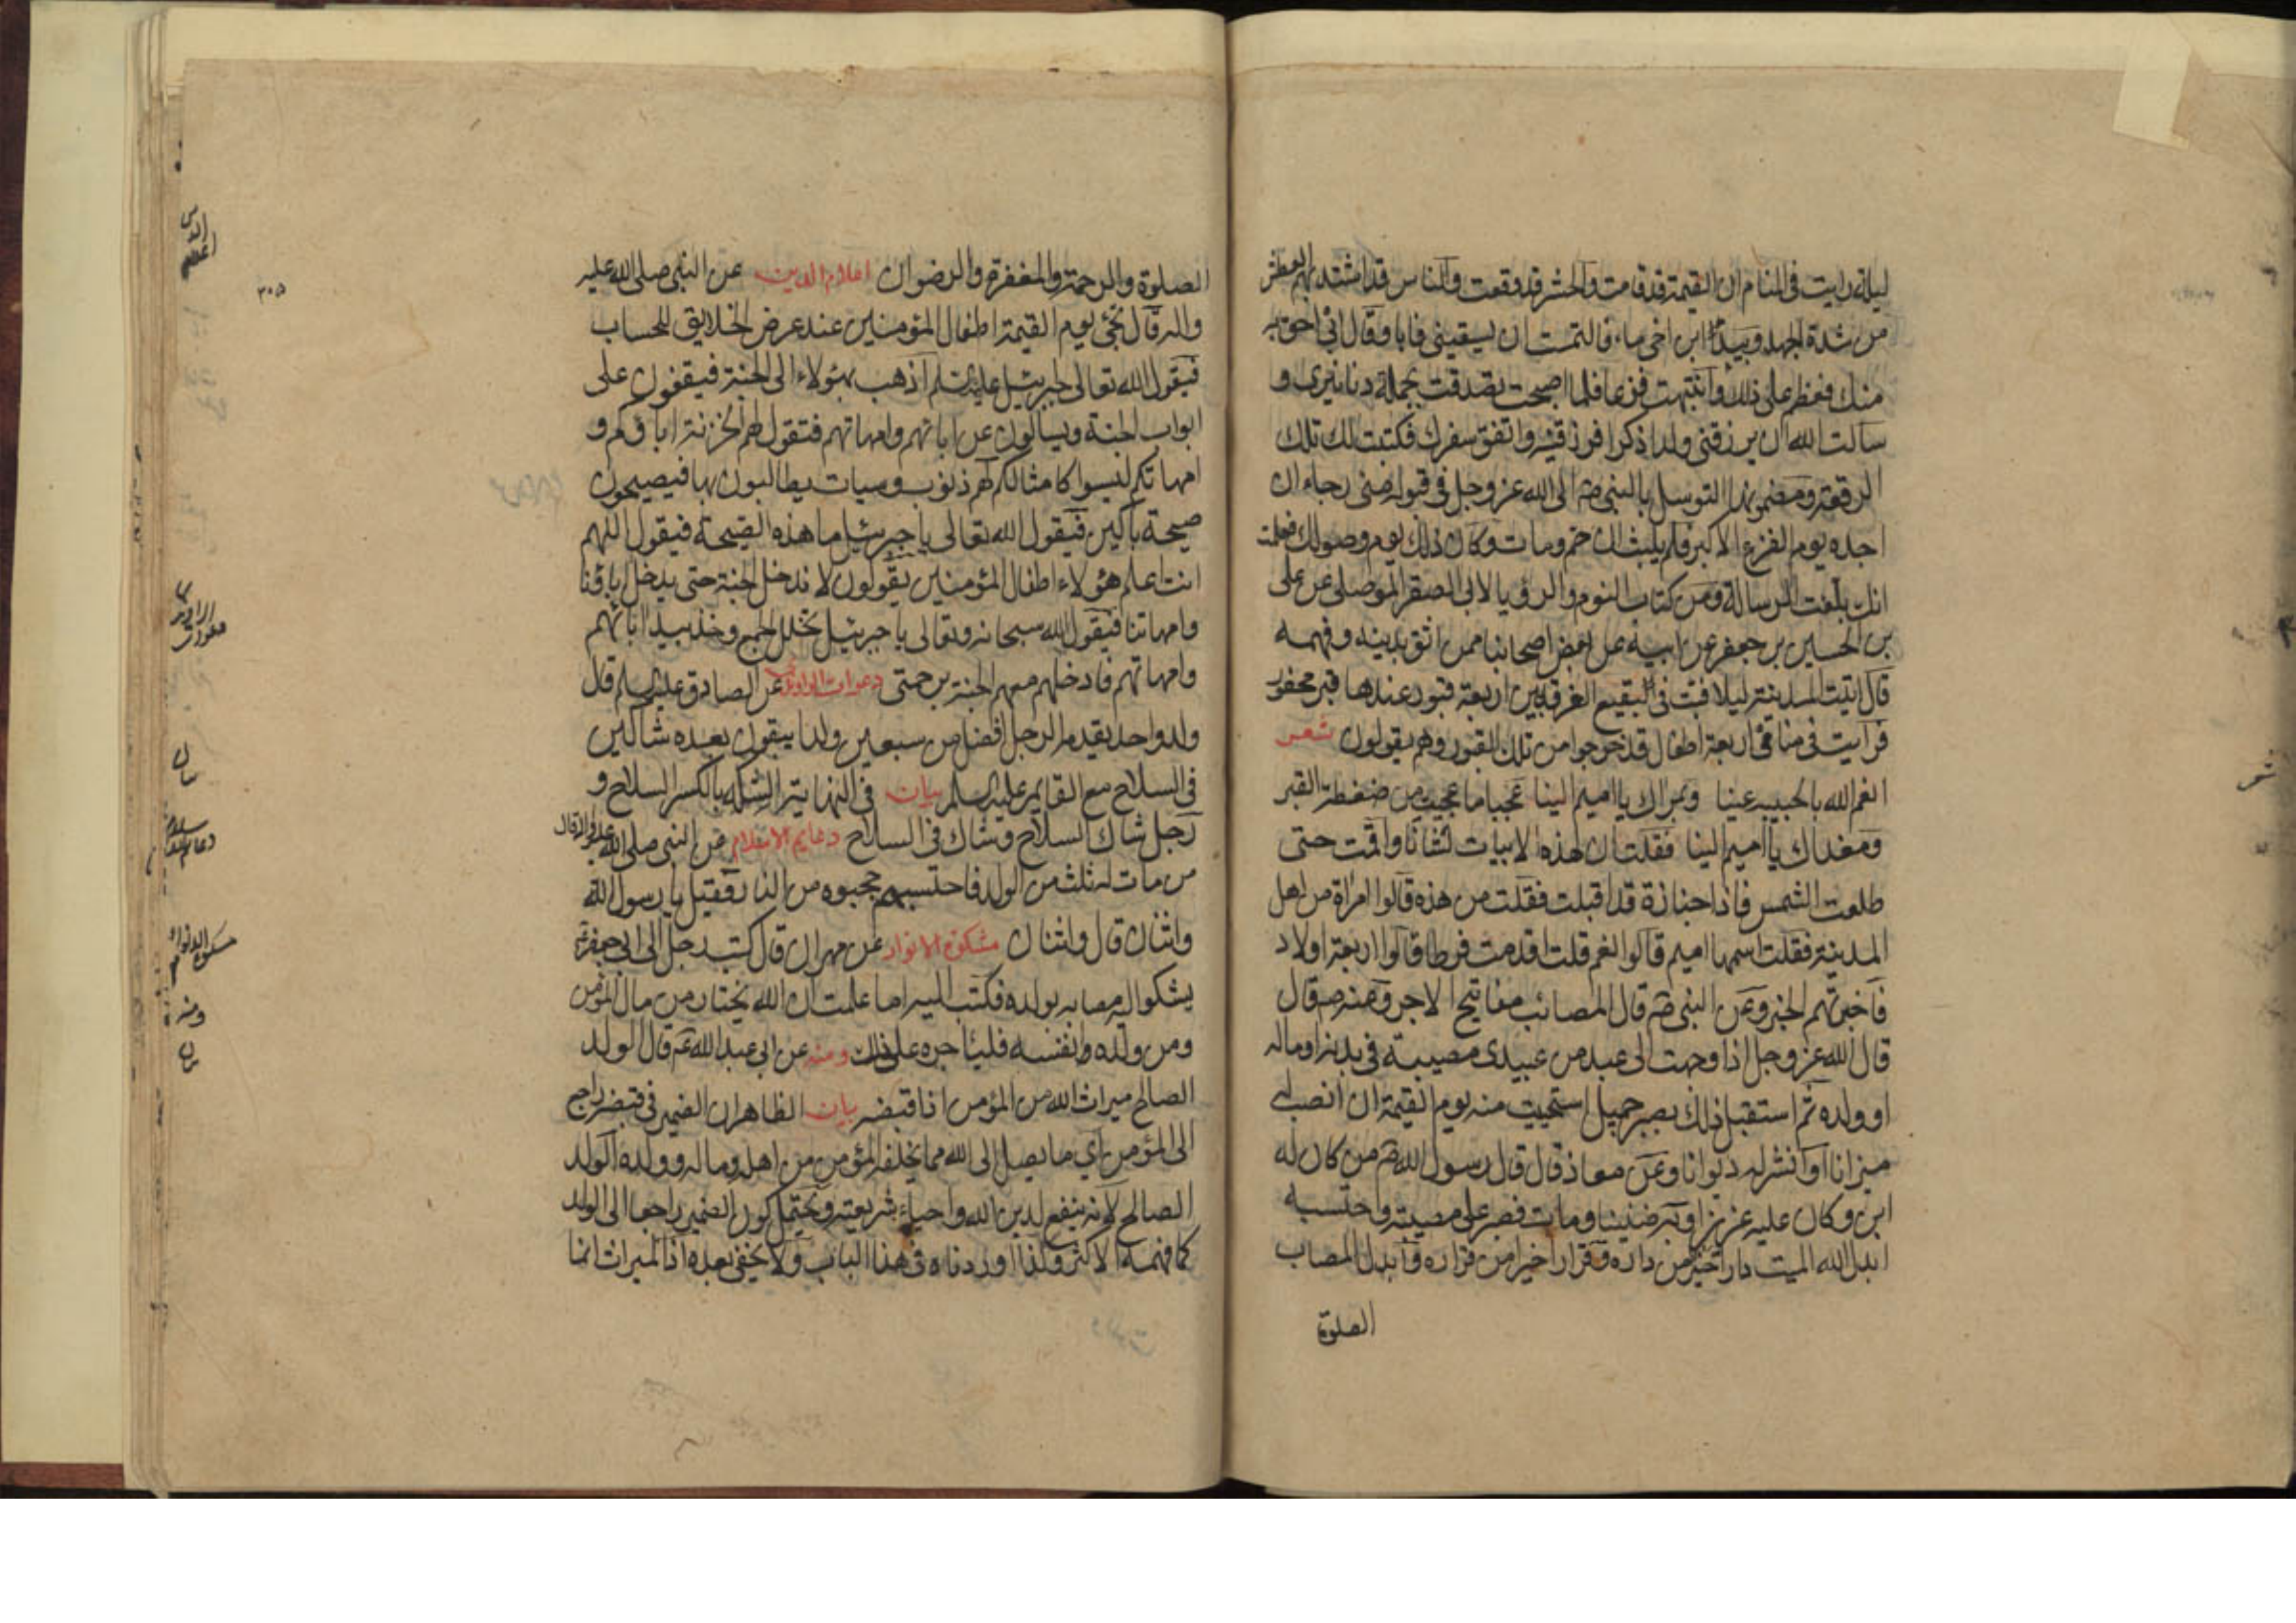 ليلة رايت في المنام ان القيمة قد قامت والحشر قد وقعت والناس قد اشتد بهم العطش
من شدة الجهد وبيد ابن اخي ماء فالتمست ان يسقيني فابا وقال اني احق به
منك فعظم علي ذلك وانتبهت فزعا فلما اصبحت تصدقت بجملة دنانيري و
سالت الله ان يرزقني ولدا ذكرا فرزقنيه واتفق سفرك فكتبت لك تلك
الرقعة ومضمونها التوسل بالنبي ص الى الله عز وجل في قبوله مني رجاء ان
اجده يوم الفزع الاكبر فلم يلبث ان حم ومات وكان ذلك يوم وصولك فعلمت
انك بلغت الرسالة ومن كتاب النوم والرؤيا لابي الصقر الموصلي عن علي
بن الحسين بن جعفر عن ابيه عن بعض اصحابنا ممن اثق بدينه وفهمه
قال اتيت المدينة ليلا فبت في البقيع الغرقد بين اربعة قبور عندها قبر محفور
فرايت في منامي اربعة اطفال قد خرجوا من تلك القبور وهم يقولون شعر
انعم الله بالحبيبه عينا وبمراك يا اميم الينا عجبا ما عجبت من ضغطة القبر
ومغداك يا اميم الينا فقلت ان لهذه الابيات لشانا واقمت حتى
طلعت الشمس فاذا جنازة قد اقبلت فقلت من هذه قالوا امراة من اهل
المدينة فقلت اسمها اميم قالوا نعم قلت اقدمت فرطا قالوا اربعة اولاد
فاخبرتهم الخبر وعن النبي ص قال المصائب مفاتيح الاجر وعنه ص قال
قال الله عز وجل اذا وجهت الى عبد من عبيدي مصيبة في بدنه او ماله
او ولده ثم استقبل ذلك بصبر جميل استحييت منه يوم القيمة ان انصب له
ميزانا او انشر له ديوانا وعن معاذ قال قال رسول الله ص من كان له
ابن وكان عليه عزيزا وبه ضنينا ومات فصبر على مصيبته واحتسبه
ابدل الله الميت دارا خيرا من داره وقرارا خيرا من قراره وابدل المصاب
الصلوة
الصلوة والرحمة والمغفرة والرضوان اعلام الدين عن النبي صلى الله عليه
واله قال يجئ يوم القيمة اطفال المؤمنين عند عرض الخلايق للحساب
فيقول الله تعالى لجبرئيل عليه السلم اذهب بهؤلاء الى الجنة فيقفون على
ابواب الجنة ويسالون عن ابائهم وامهاتهم فتقول لهم الخزنة اباؤكم و
امهاتكم ليسوا كامثالكم لهم ذنوب وسيات يطالبون بها فيصيحون
صيحة باكين فيقول الله تعالى يا جبرئيل ما هذه الصيحة فيقول اللهم
انت اعلم هؤلاء اطفال المؤمنين يقولون لا ندخل الجنة حتى يدخل اباؤنا
وامهاتنا فيقول الله سبحانه وتعالى يا جبرئيل تخلل الجمع وخذ بيد ابائهم
وامهاتهم فادخلهم معهم الجنة برحمتي دعوات الراوندي عن الصادق عليه السلم قال
ولد واحد يقدمه الرجل افضل من سبعين ولدا يبقون بعده شاكين
في السلاح مع القايم عليه السلم بيان في النهاية الشكه بالكسر السلاح و
رجل شاك السلاح وشاك في السلاح دعايم الاسلام عن النبي صلى الله عليه واله قال
من مات له ثلث من الولد فاحتسبهم حجبوه من النار فقيل يا رسول الله
واثنان قال واثنان مشكوة الانوار عن مهران قال كتب رجل الى ابي جعفر ع
يشكو اليه مصابه بولده فكتب اليه اما علمت ان الله يختار من مال المؤمن
ومن ولده وانفسه فليئاجره على ذلك ومنه عن ابي عبد الله ع قال الولد
الصالح ميراث الله من المؤمن اذا قبضه بيان الظاهر ان الضمير في قبضه راجع
الى المؤمن اي ما يصل الى الله مما يخلفه المؤمن من اهله وماله وولده الولد
الصالح لانه ينفع لدين الله واحياء شريعته ويحتمل كون الضمير راجعا الى الولد
كما فهمه الاكثر ولذا اوردناه في هذا الباب ولا يخفى بعده اذ الميراث انما
٣٠٥
الدين
اعلام
بيان
دعايم الاسلام
مشكوة الانوار
ومنه
بيان
شعر